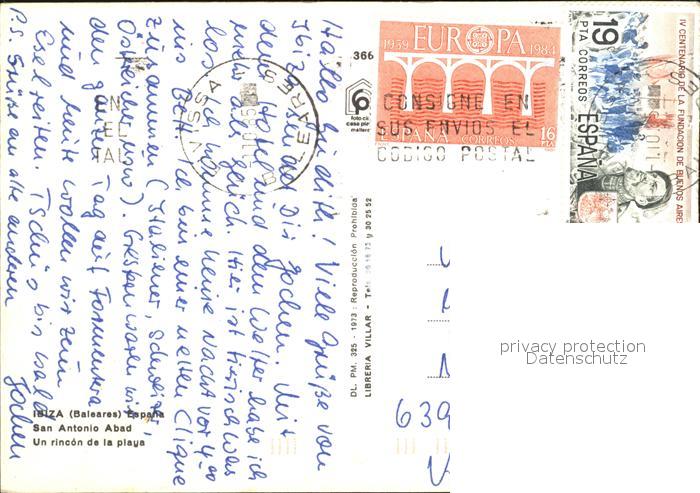 Hallo Judith! Viele Grüße von
Ibiza sendet Dir Jochen. Mit
dem Hotel und dem Wetter habe ich
Glück. Hier ist tierisch was
los. Ich komme keine Nacht vor 4.00
ins Bett. Ich bin einer netten Clique
zusammen (Italiener, Schweizer,
Östereicher usw). Gestern waren wir
den ganzen Tag auf Formentera
und heute wollen wir zum
Eselreiten. Tschüs bis bald
Jochen
P.S. Grüße an alle anderen
BALEARES
EN
EL
TAL
366
1959 EUROPA 1984
ESPAÑA CORREOS 16 PTA
CONSIGNE EN
SUS ENVIOS EL
CODIGO POSTAL
19 PTA CORREOS ESPAÑA
IV CENTENARIO DE LA FUNDACION DE BUENOS AIRES
DL. PM. 325 - 1973 : Reproducción Prohibida
LIBRERIA VILLAR - Telf.
y 30 25 52
639
IBIZA (Baleares) España
San Antonio Abad
Un rincón de la playa
privacy protection
Datenschutz